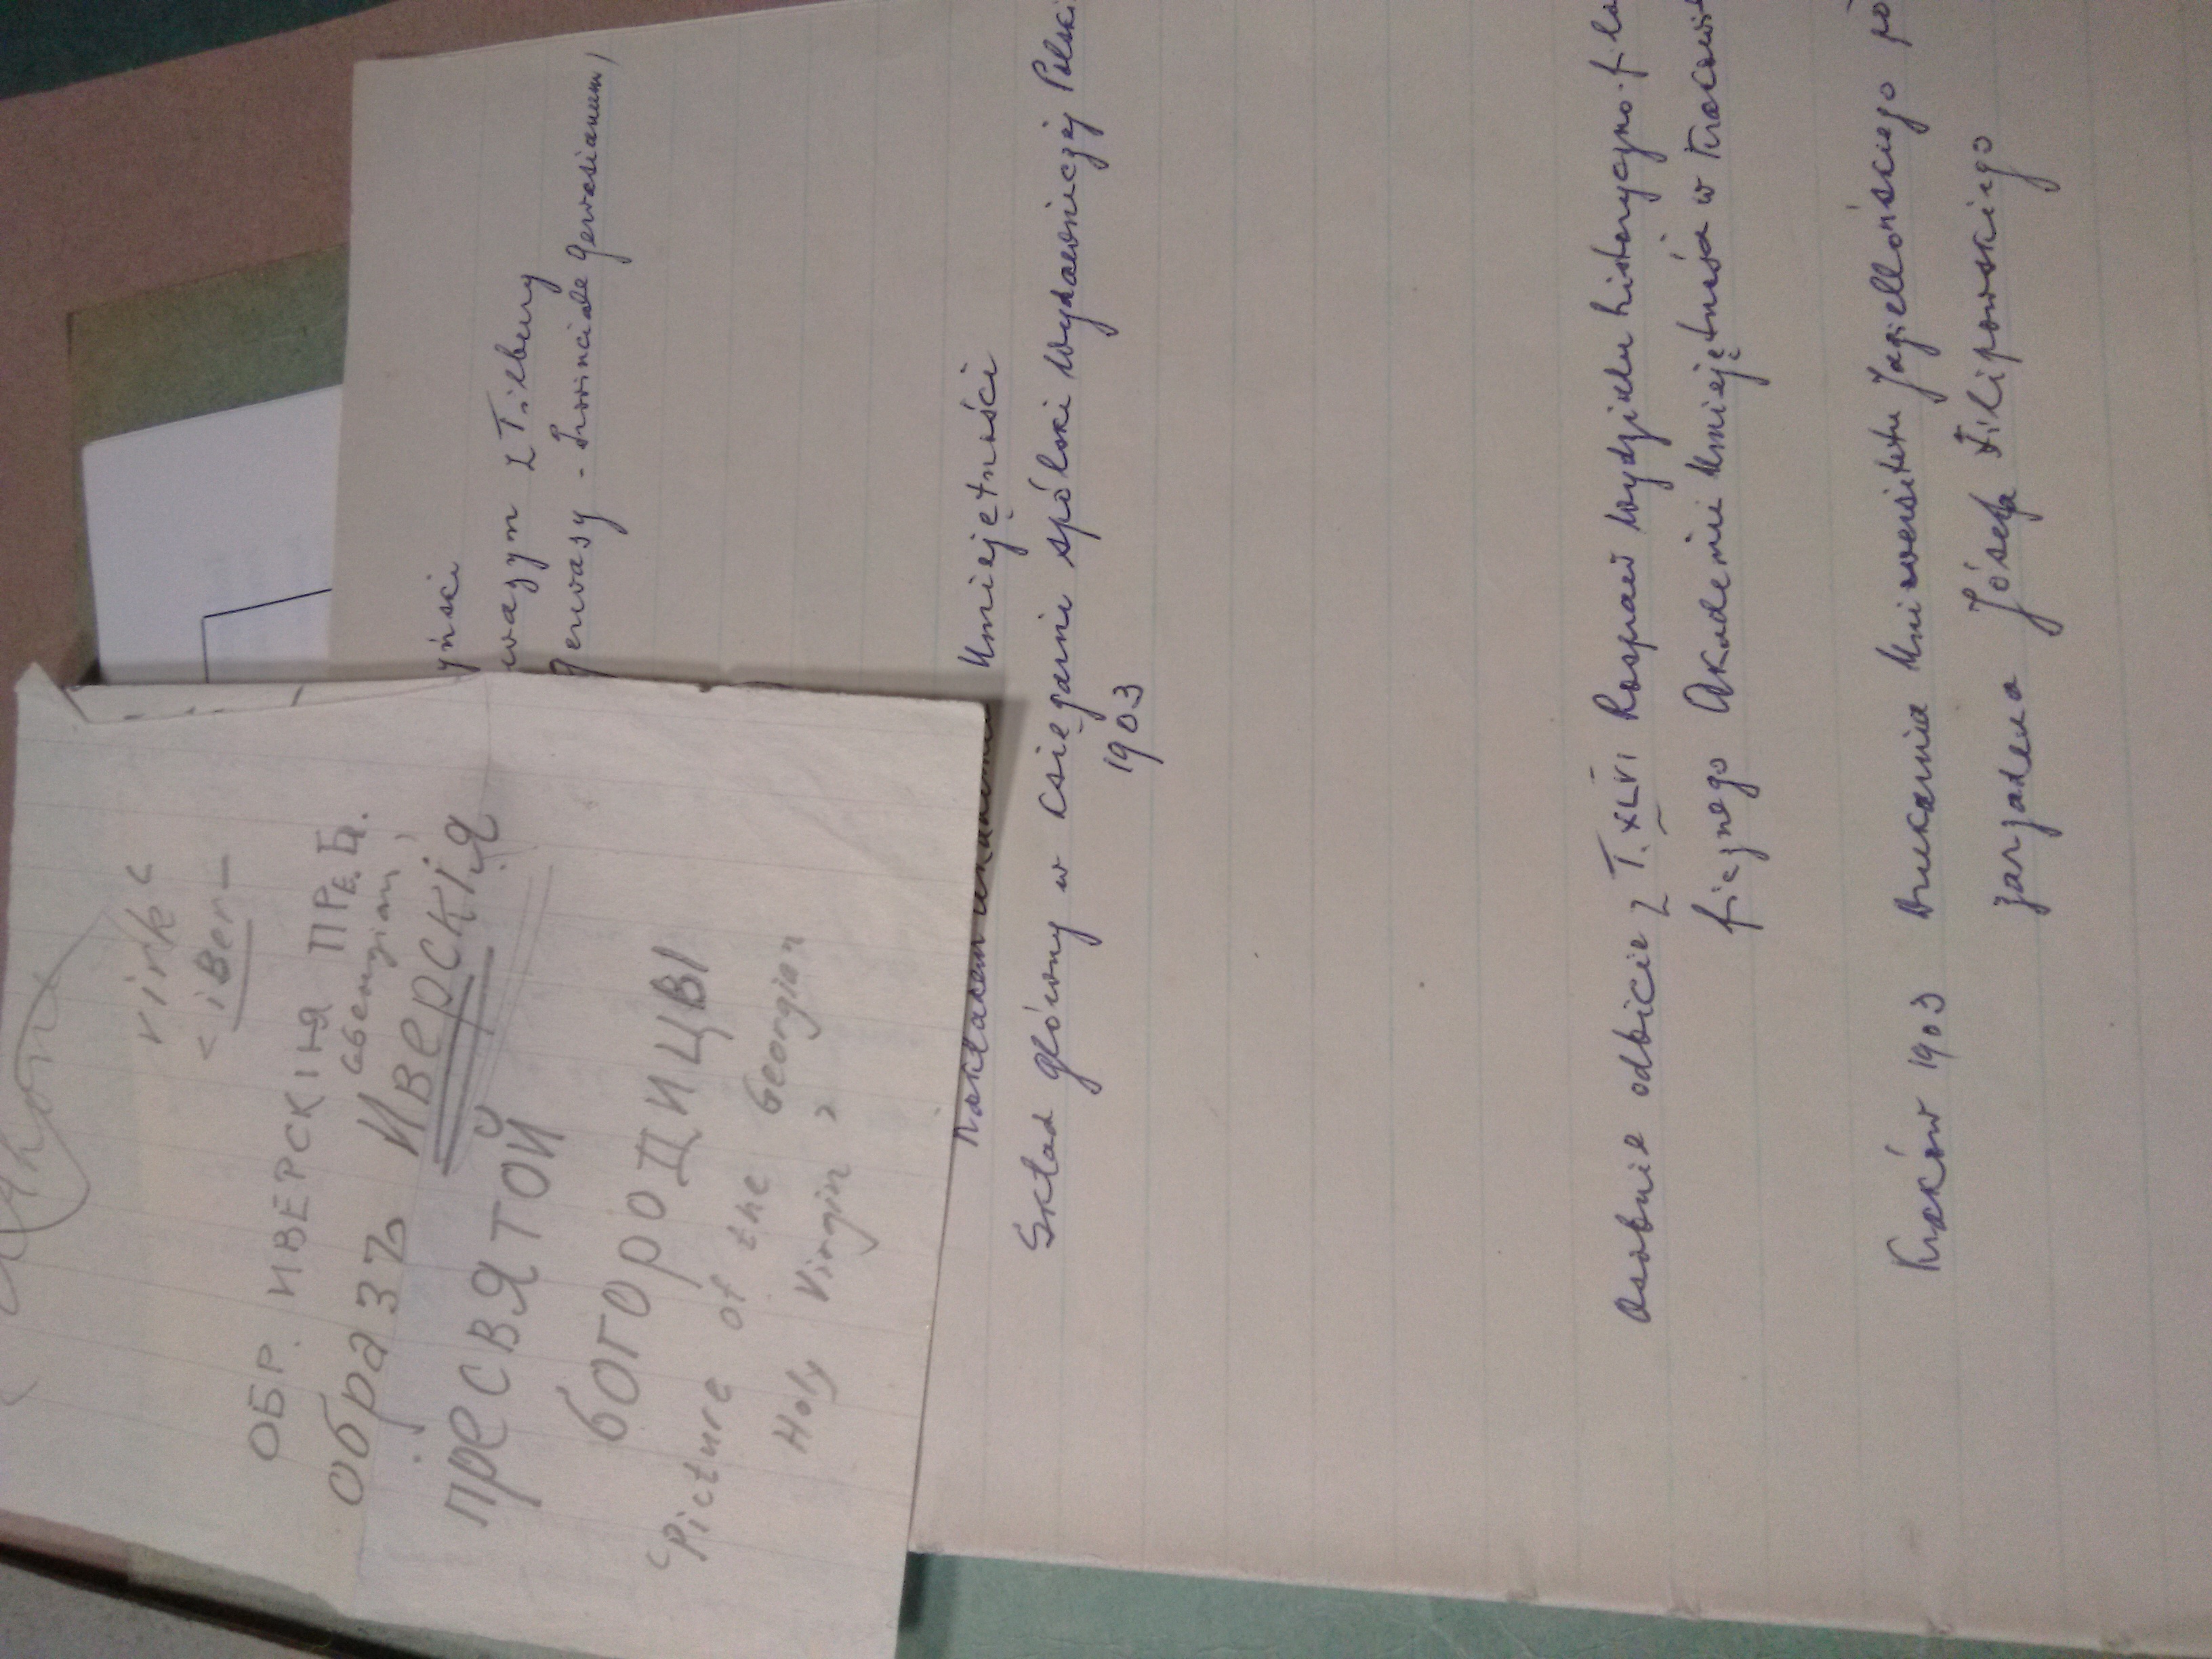 virk <
< iBer-
ОБР. ИВЕРСКІЯ ПРЕ.Б.
образъ Иверскія
пресвятой
богородицы
"Picture of the Georgian
Holy Virgin"
yńsci
wazym z Tilbury
Gerwazy - Prowinciale Gervasianum)
Nakładem
Umiejętności
Skład główny w Csięgarni spółki wydawniczej Polski
1903
Osobnie odbicie z T. XLVI Rospraw wydziału historyczno-filo
ficznego Akademii Umiejętnośa w Kracowi
Kraków 1903 Drukarnia Uniwersitetu Jagiellońsciego po
zarzadem Józefa Filipowskiego